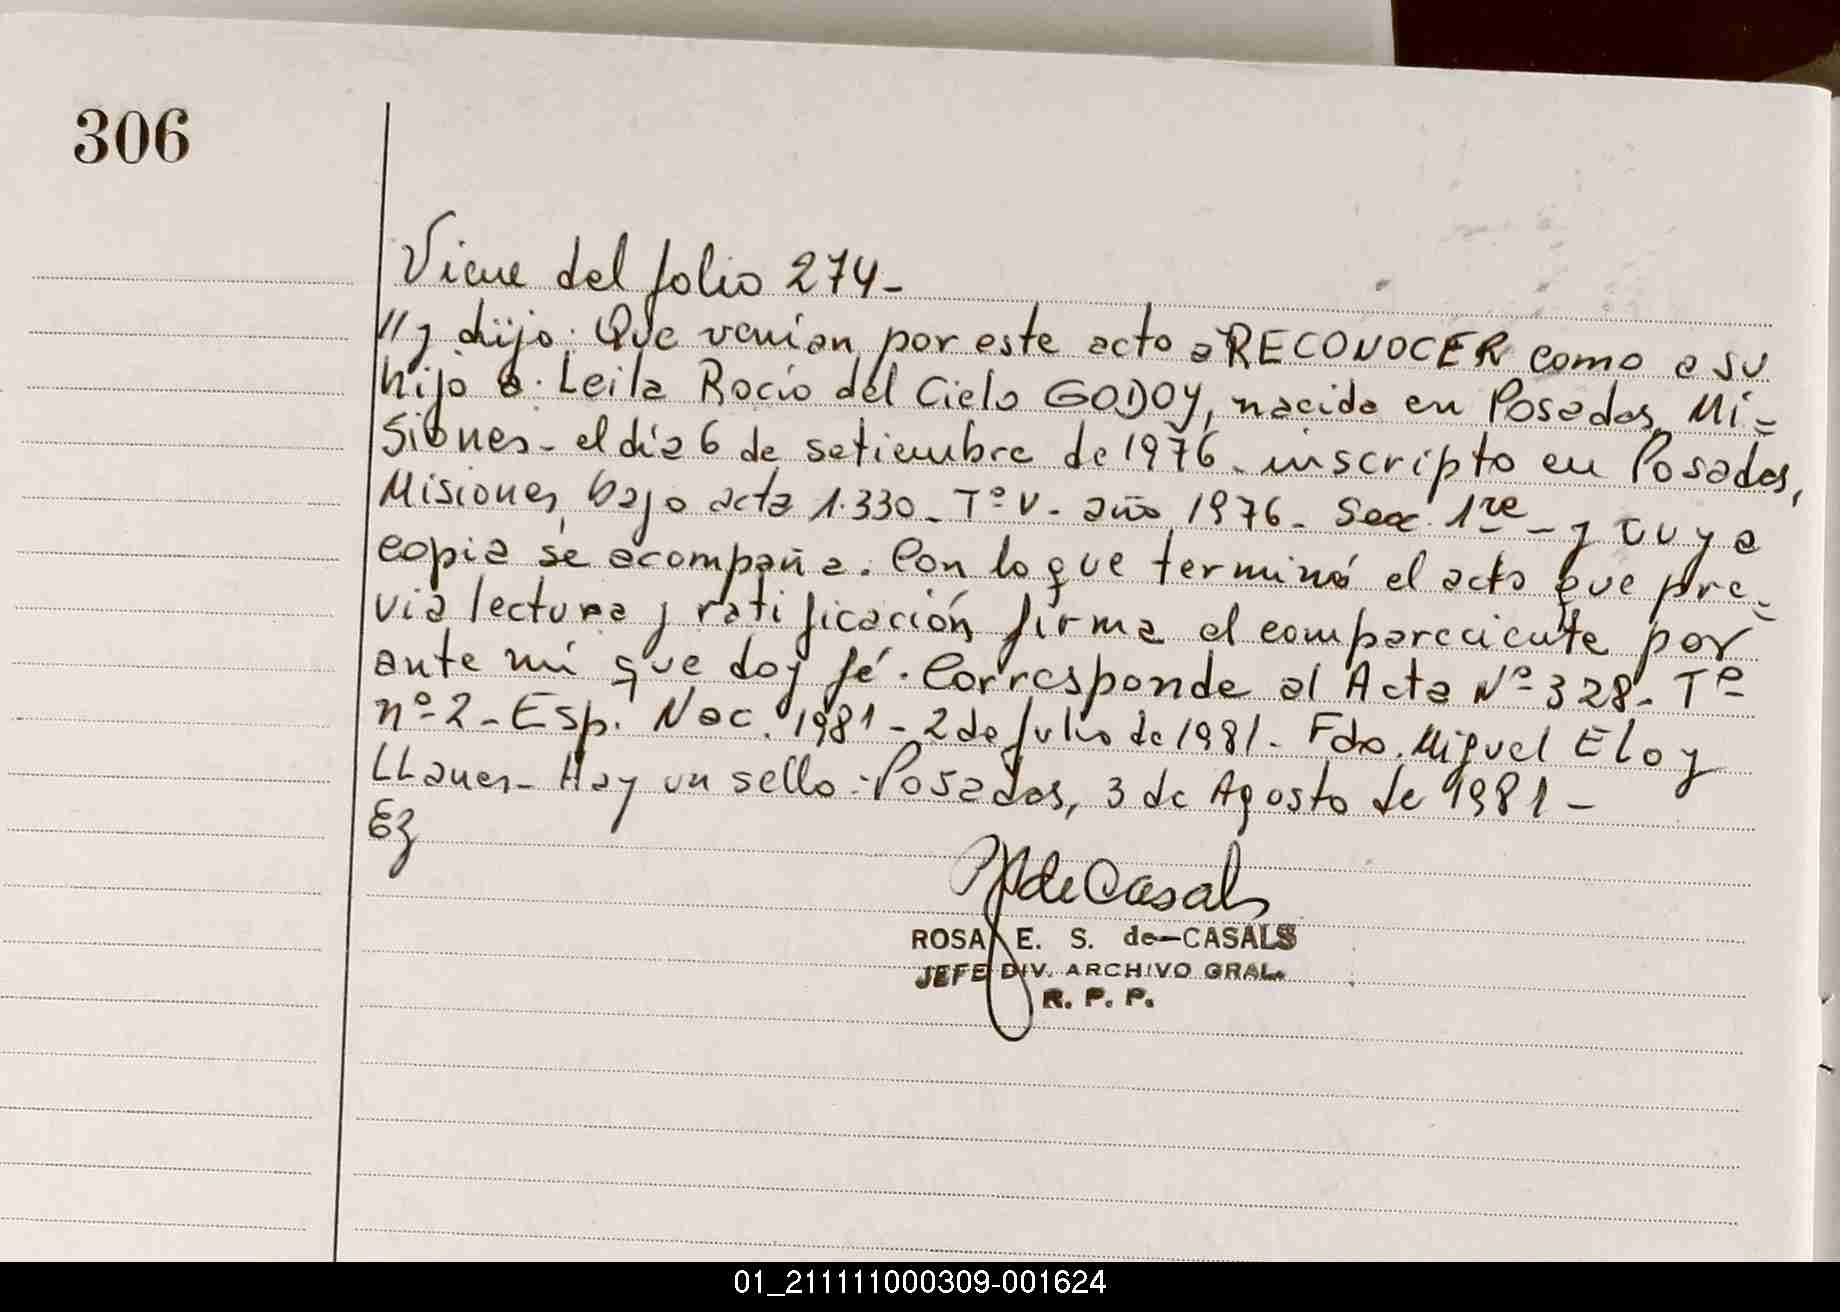 306
Viene del folio 274-
//y dijo: Que venían por este acto a RECONOCER como a su
hijo a: Leila Rocío del Cielo GODOY, nacido en Posadas, Mi=
siones- el día 6 de setiembre de 1976- inscripto en Posadas,
Misiones, bajo acta 1.330- Tº V- año 1976- Secc. 1ra- y cuya
copia se acompaña. Con lo que terminó el acto que pre-
via lectura y ratificación firma el compareciente por
ante mí que doy fé. Corresponde al Acta Nº 328- Tº
nº 2- Esp. Nac. 1981- 2 de Julio de 1981- Fdo. Miguel Eloy
LLanes- Hay un sello: Posadas, 3 de Agosto de 1981-
de Casals
ROSA E. S. de-CASALS
JEFE DIV. ARCHIVO GRAL.
R. P. P.
01_211111000309-001624